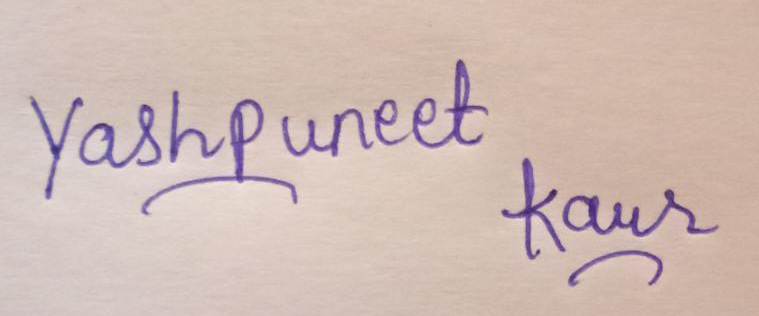 Yashpuneet
Kaur